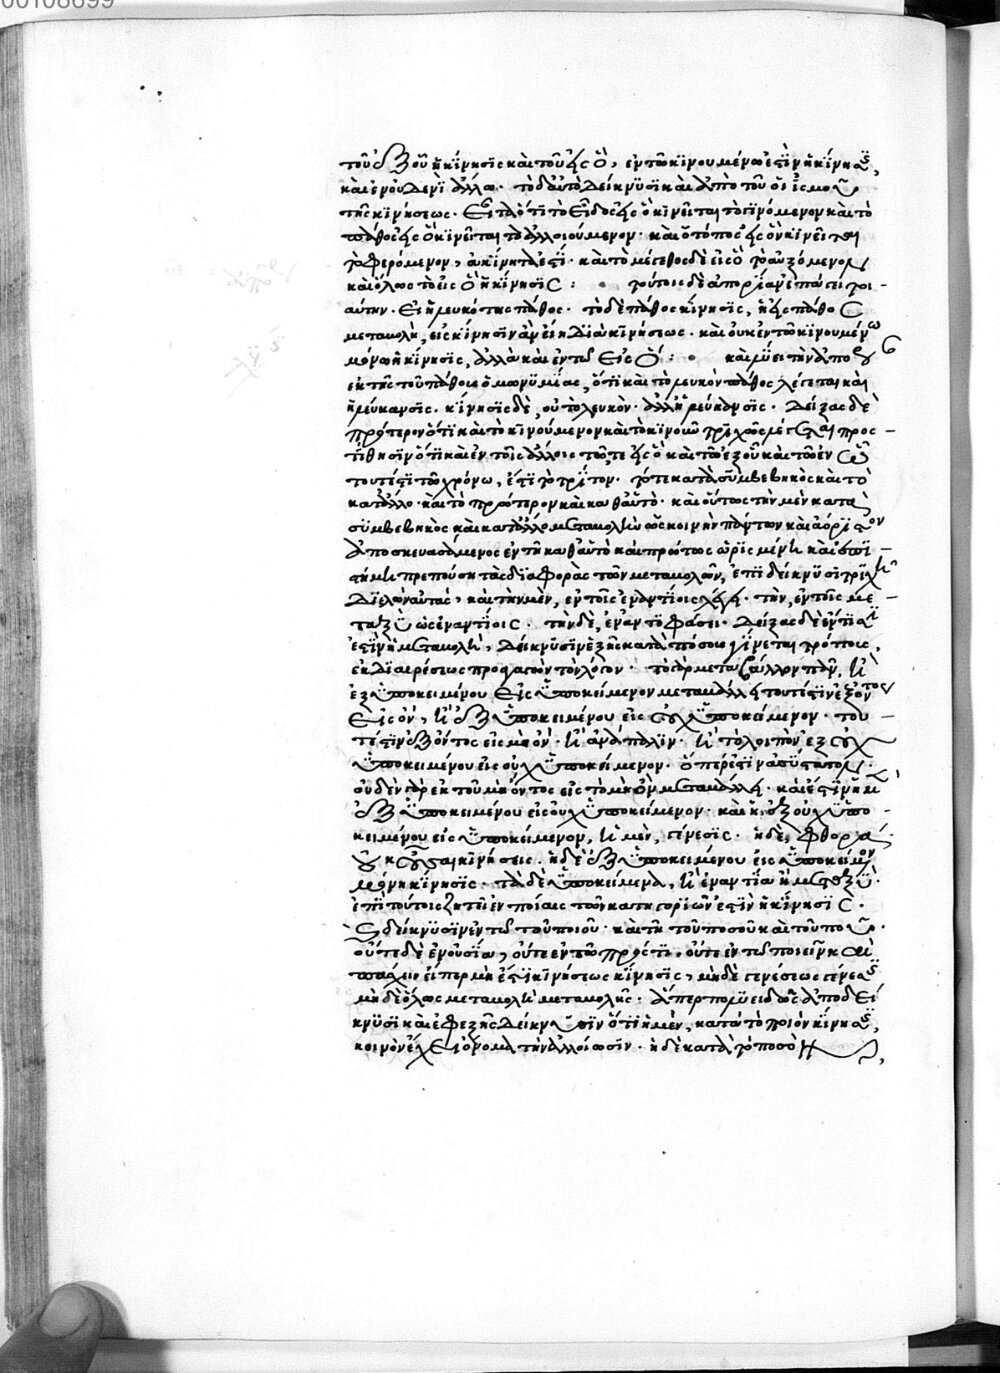 00108699
τοῦ ἐξ οὗ ἡ κίνησις καὶ τοῦ εἰς ὅ, ἐν τῷ κινουμένῳ ἐστὶν ἡ κίνησις,
καὶ ἐν οὐδενὶ ἄλλῳ. τὸ δ' αὐτὸ δείκνυσι καὶ ἀπὸ τοῦ
τῆς κινήσεως. εἴπερ τὸ εἶδος εἰς ὃ κινεῖται τὸ γινόμενον καὶ τὸ
πάθος εἰς ὃ κινεῖται τὸ ἀλλοιούμενον. καὶ ὁ τόπος εἰς ὃν κινεῖται
τὸ φερόμενον, ἀκίνητά ἐστι. καὶ τὸ μέγεθος δὲ εἰς ὃ τὸ αὐξόμενον
καὶ ὅλως τὸ εἰς ὃ ἡ κίνησις : τούτοις δὲ ἀπορίαν ἐπάγει τοι-
αύτην. εἰ ἡ λευκότης πάθος. τὸ δὲ πάθος κίνησις, ἡ εἰς πάθος
μεταβολὴ, εἰς κίνησιν ἂν εἴη διὰ κινήσεως. καὶ οὐκ ἐν τῷ κινουμένῳ
μόνῳ ἡ κίνησις, ἀλλὰ καὶ ἐν τῷ εἰς ὅ : καὶ λύει τὴν ἀπο
ἐκ τῆς τοῦ πάθους ὁμωνυμίας, ὅτι καὶ τὸ λευκὸν πάθος λέγεται καὶ
ἡ λεύκανσις. κίνησις δὲ, οὐ τὸ λευκὸν. ἀλλ' ἡ λεύκανσις. δείξας δὲ
πρότερον ὅτι καὶ τὸ κινούμενον καὶ τὸ κινοῦν τριχῶς λέγεται προσ-
τίθησιν ὅτι καὶ ἐν τοῖς ἄλλοις τῷ τε εἰς ὃ καὶ τῷ ἐξ οὗ καὶ τῷ ἐν ᾧ
τουτέστι τῷ χρόνῳ, ἔστι τὸ τρίτον. τό τε κατὰ συμβεβηκὸς καὶ τὸ
κατ' ἄλλο. καὶ τὸ πρώτερον καὶ καθ' αὑτὸ. καὶ οὕτως τὴν μὲν κατὰ
συμβεβηκὸς καὶ κατ' ἄλλο μεταβολὴν ὡς κοινὴν πάντων καὶ ἀόριστον
ἀποσκευασάμενος ἐν τῇ καθ' αὑτὸ καὶ πρώτως ὡρισμένῃ καὶ ἐπι-
στήμῃ πρεπούσῃ τὰς διαφορὰς τῶν μεταβολῶν, ἐπιδείκνυσι τριχῇ
διελὼν αὐτὰς. καὶ τὴν μὲν, ἐν τοῖς ἐναντίοις λέγει. τὴν, ἐν τοῖς με-
ταξὺ ὡς ἐναντίοις. τὴν δὲ, ἐν ἀντιφάσει. δείξας δὲ ἐν τίσιν
ἐστὶν ἡ μεταβολὴ, δείκνυσιν ἑξῆς κατὰ πόσους γίνεται τρόπους,
ἐκ διαιρέσεως προάγων τὸν λόγον. τὸ γὰρ μεταβάλλον πᾶν, ἢ
ἐξ ὑποκειμένου εἰς ὑποκείμενον μεταβάλλει τουτέστιν ἐξ ὄντος
εἰς ὄν, ἢ ἐξ ὑποκειμένου εἰς οὐχ ὑποκείμενον. του-
τέστιν ἐξ ὄντος εἰς μὴ ὄν. ἢ ἀνάπαλιν. ἢ τὸ λοιπὸν ἐξ οὐχ
ὑποκειμένου εἰς οὐχ ὑποκείμενον. ὅπερ ἐστὶν ἀσύστατον.
οὐδὲν γὰρ ἐκ τοῦ μὴ ὄντος εἰς τὸ μὴ ὂν μεταβάλλει. καὶ ἔστιν ἡ μὲν
ἐξ ὑποκειμένου εἰς οὐχ ὑποκείμενον. καὶ ἡ ἐξ οὐχ ὑπο-
κειμένου εἰς ὑποκείμενον, ἡ μὲν, γένεσις. ἡ δὲ, φθορὰ.
οὐκ οὖσαι κινήσεις. ἡ δὲ ἐξ ὑποκειμένου εἰς ὑποκείμενον
μόνη κίνησις. τὰ δὲ ὑποκείμενα, ἢ ἐναντία ἢ μεταξύ.
ἐπὶ τούτοις ζητεῖ ἐν ποίαις τῶν κατηγοριῶν ἐστὶν ἡ κίνησις.
δείκνυσιν ἐν τῷ τοῦ ποιοῦ. καὶ τῇ τοῦ ποσοῦ καὶ τοῦ ποῦ.
οὔτε δὲ ἐν οὐσίᾳ, οὔτε ἐν τῷ πρός τι. οὔτε ἐν τῷ ποιεῖν καὶ
πάσχειν εἴπερ μὴ ἔστι κινήσεως κίνησις, μηδὲ γενέσεως γένεσις
μηδὲ ὅλως μεταβολὴ μεταβολῆς. ἅπερ πολυειδῶς ἀποδεί-
κνυσι καὶ ἐφεξῆς δείκνυσιν ὅτι ἡ μὲν, κατὰ τὸ ποιὸν κίνησις,
κοινὸν ἔχει ὄνομα τὴν ἀλλοίωσιν. ἡ δὲ κατὰ τὸ ποσὸν